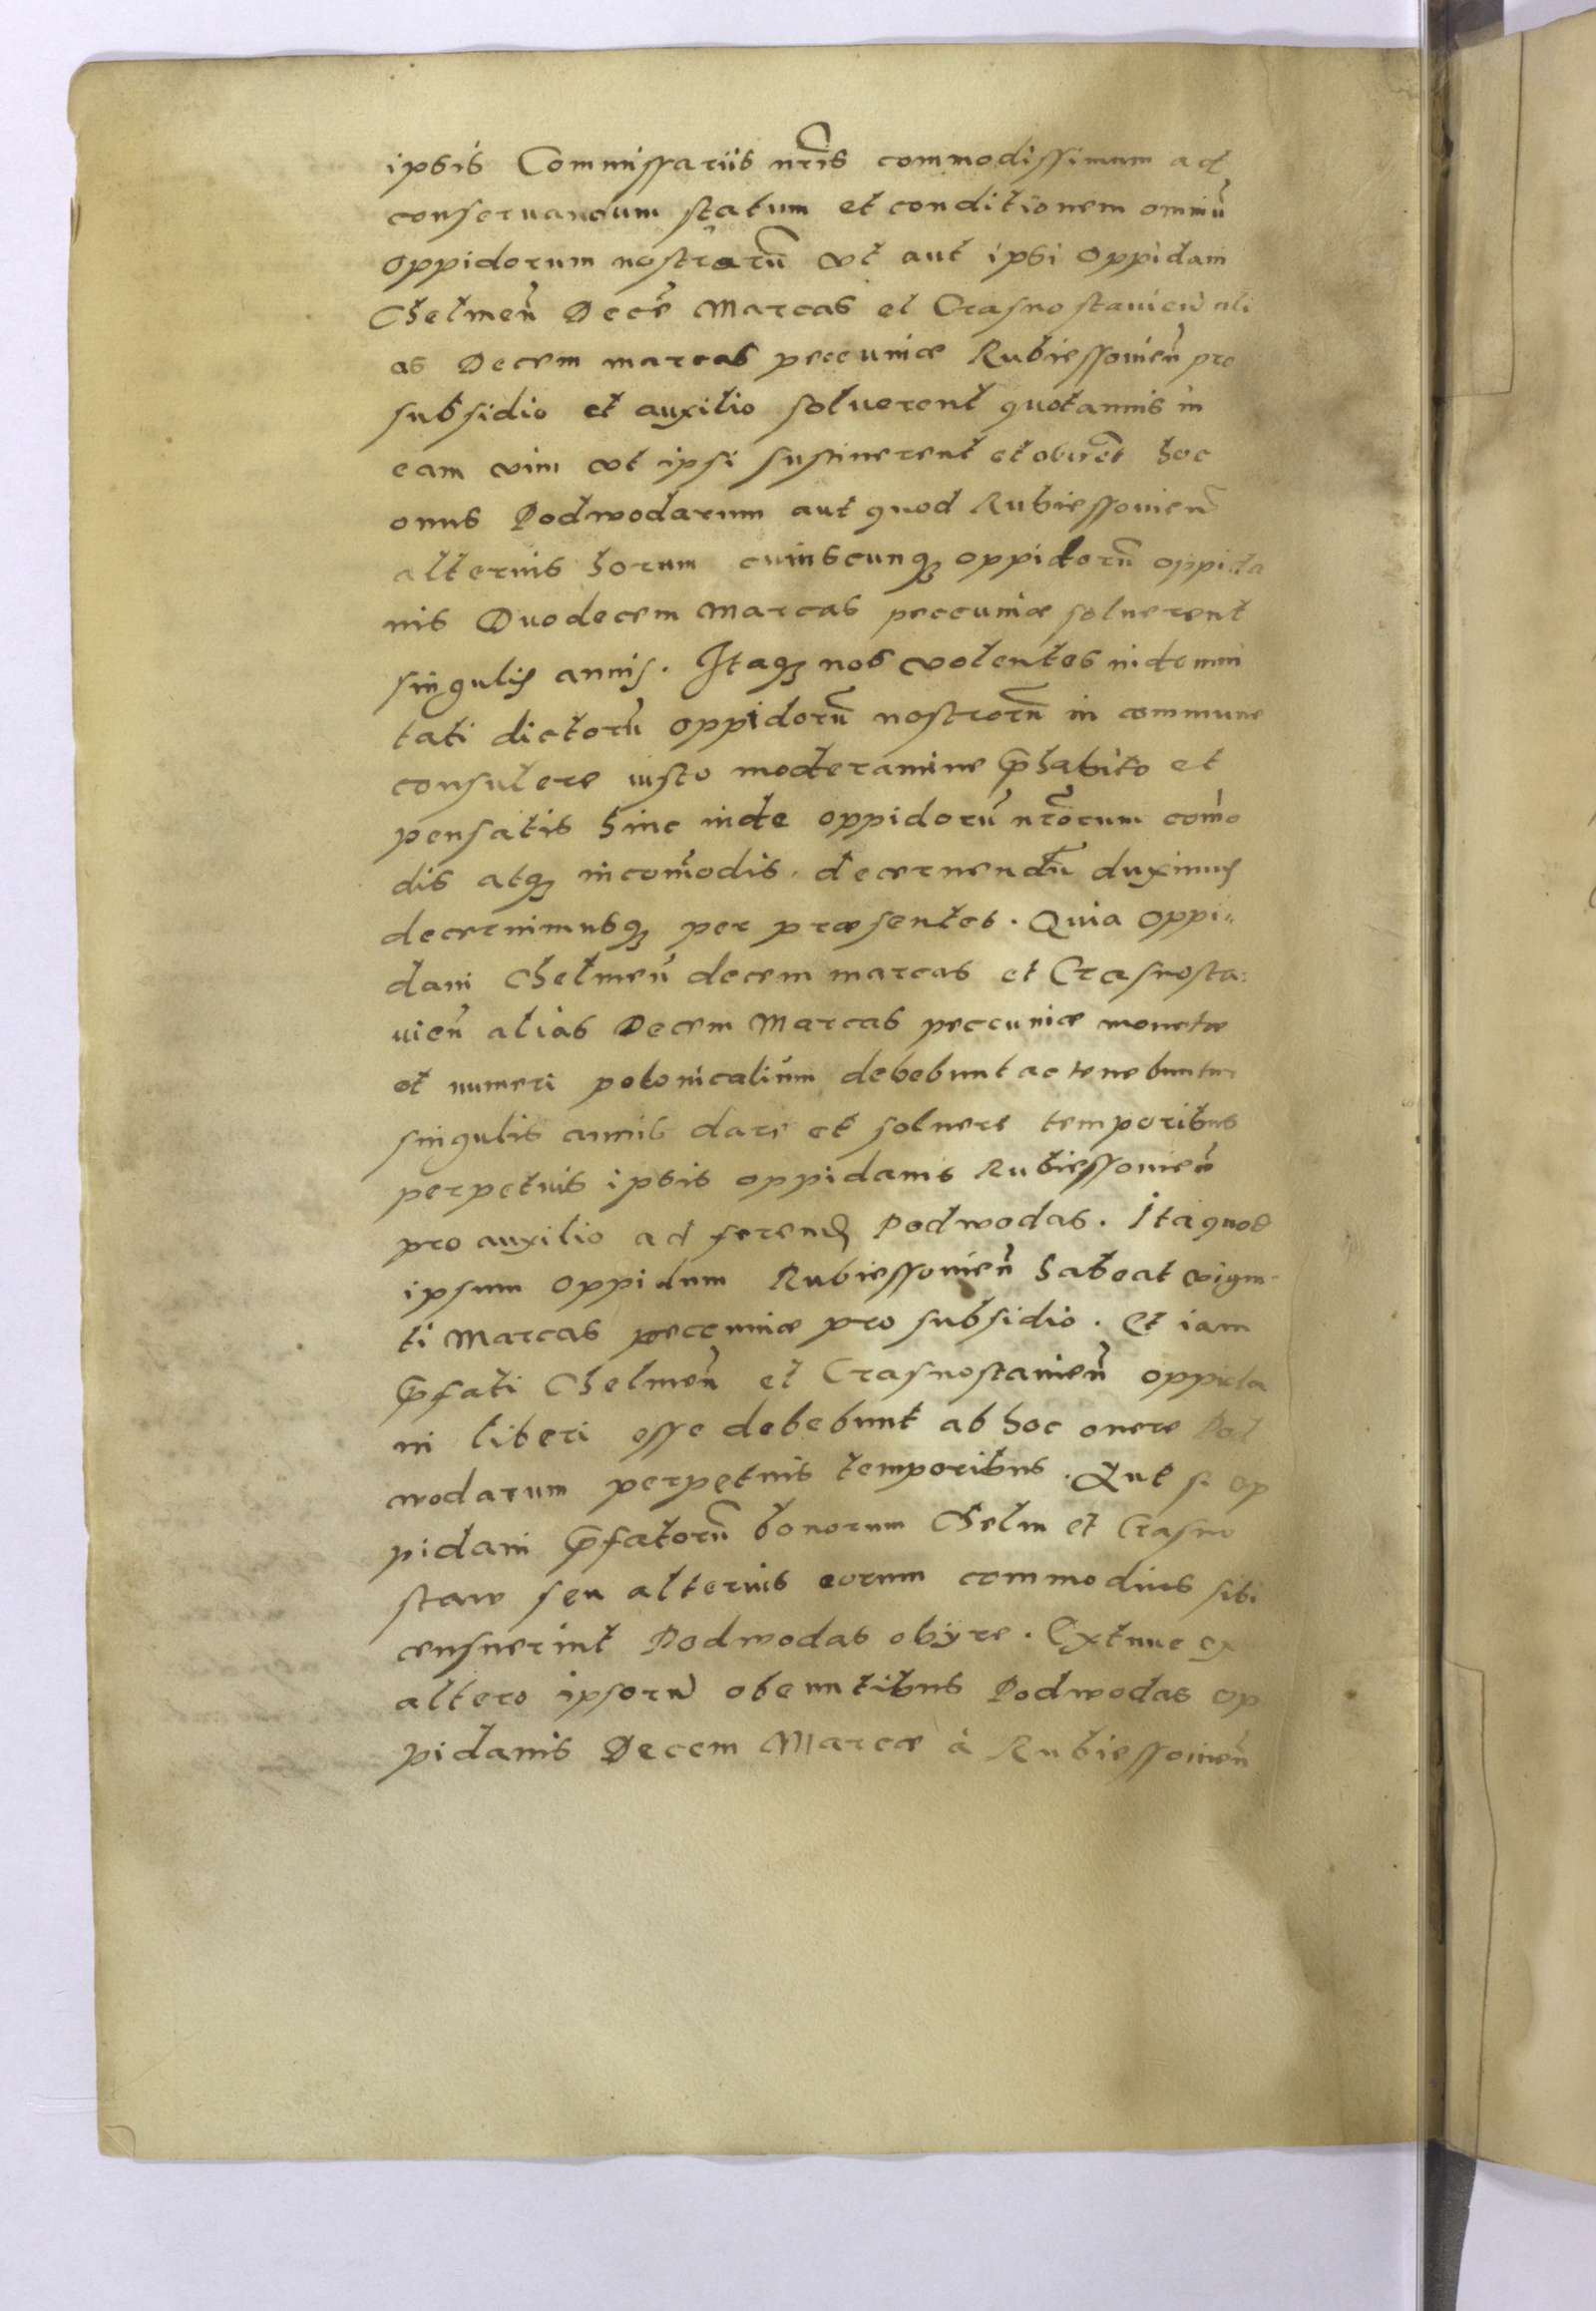 ipsis Commissariis nr̃is commodissimum ad
conseruandum statum et conditionem omniũ
oppidorum nostrarũ vt aut ipsi oppidani
Chelmeñ Decẽ Marcas et Crasnostavieñ ali
as Decem marcas peccuniæ Rubiessovieñ pro
subsidio et auxilio soluerent quotannis in
eam vim vt ipsi sustinerent et obirẽt hoc
onus Podwodarum aut quod Rubiessovieñ
alterius horum cuiuscunqꝫ oppidorũ oppida
nis Duodecem Marcas peccuniæ soluerent
singulis annis. Itaqꝫ nos volentes indemni
tati dictorũ oppidorũ nostrorũ in commune
consulere iusto moderamine p̃habito et
pensatis hinc inde oppidorũ nr̃orum com̃o
dis atqꝫ incom̃odis. decernendũ duximus
decernimusqꝫ per præsentes. Quia oppi=
dani Chelmeñ decem marcas et Crasnosta:
uieñ alias Decem Marcas peccuniæ monetæ
et numeri polonicalium debebunt ac tenebuntur
singulis annis dare et soluere temporibus
perpetuis ipsis oppidanis Rubiessovieñ
pro auxilio ad ferenď Podwodas. Ita quod
ipsum oppidum Rubiessovieñ habeat vigin-
ti Marcas peccuniæ pro subsidio. Et iam
p̃fati Chelmeñ et Crasnostavieñ oppida
ni liberi esse debebunt ab hoc onere Pod
wodarum perpetuis temporibus. Aut si op
pidani p̃fatorũ bonorum Chelm et Crasno
staw seu alterius eorum commodius sibi
censuerint Podwodas obyre. Extunc ex
altero ipsorũ obeuntibus Podwodas op
pidanis Decem Marcæ à Rubiessovieñ